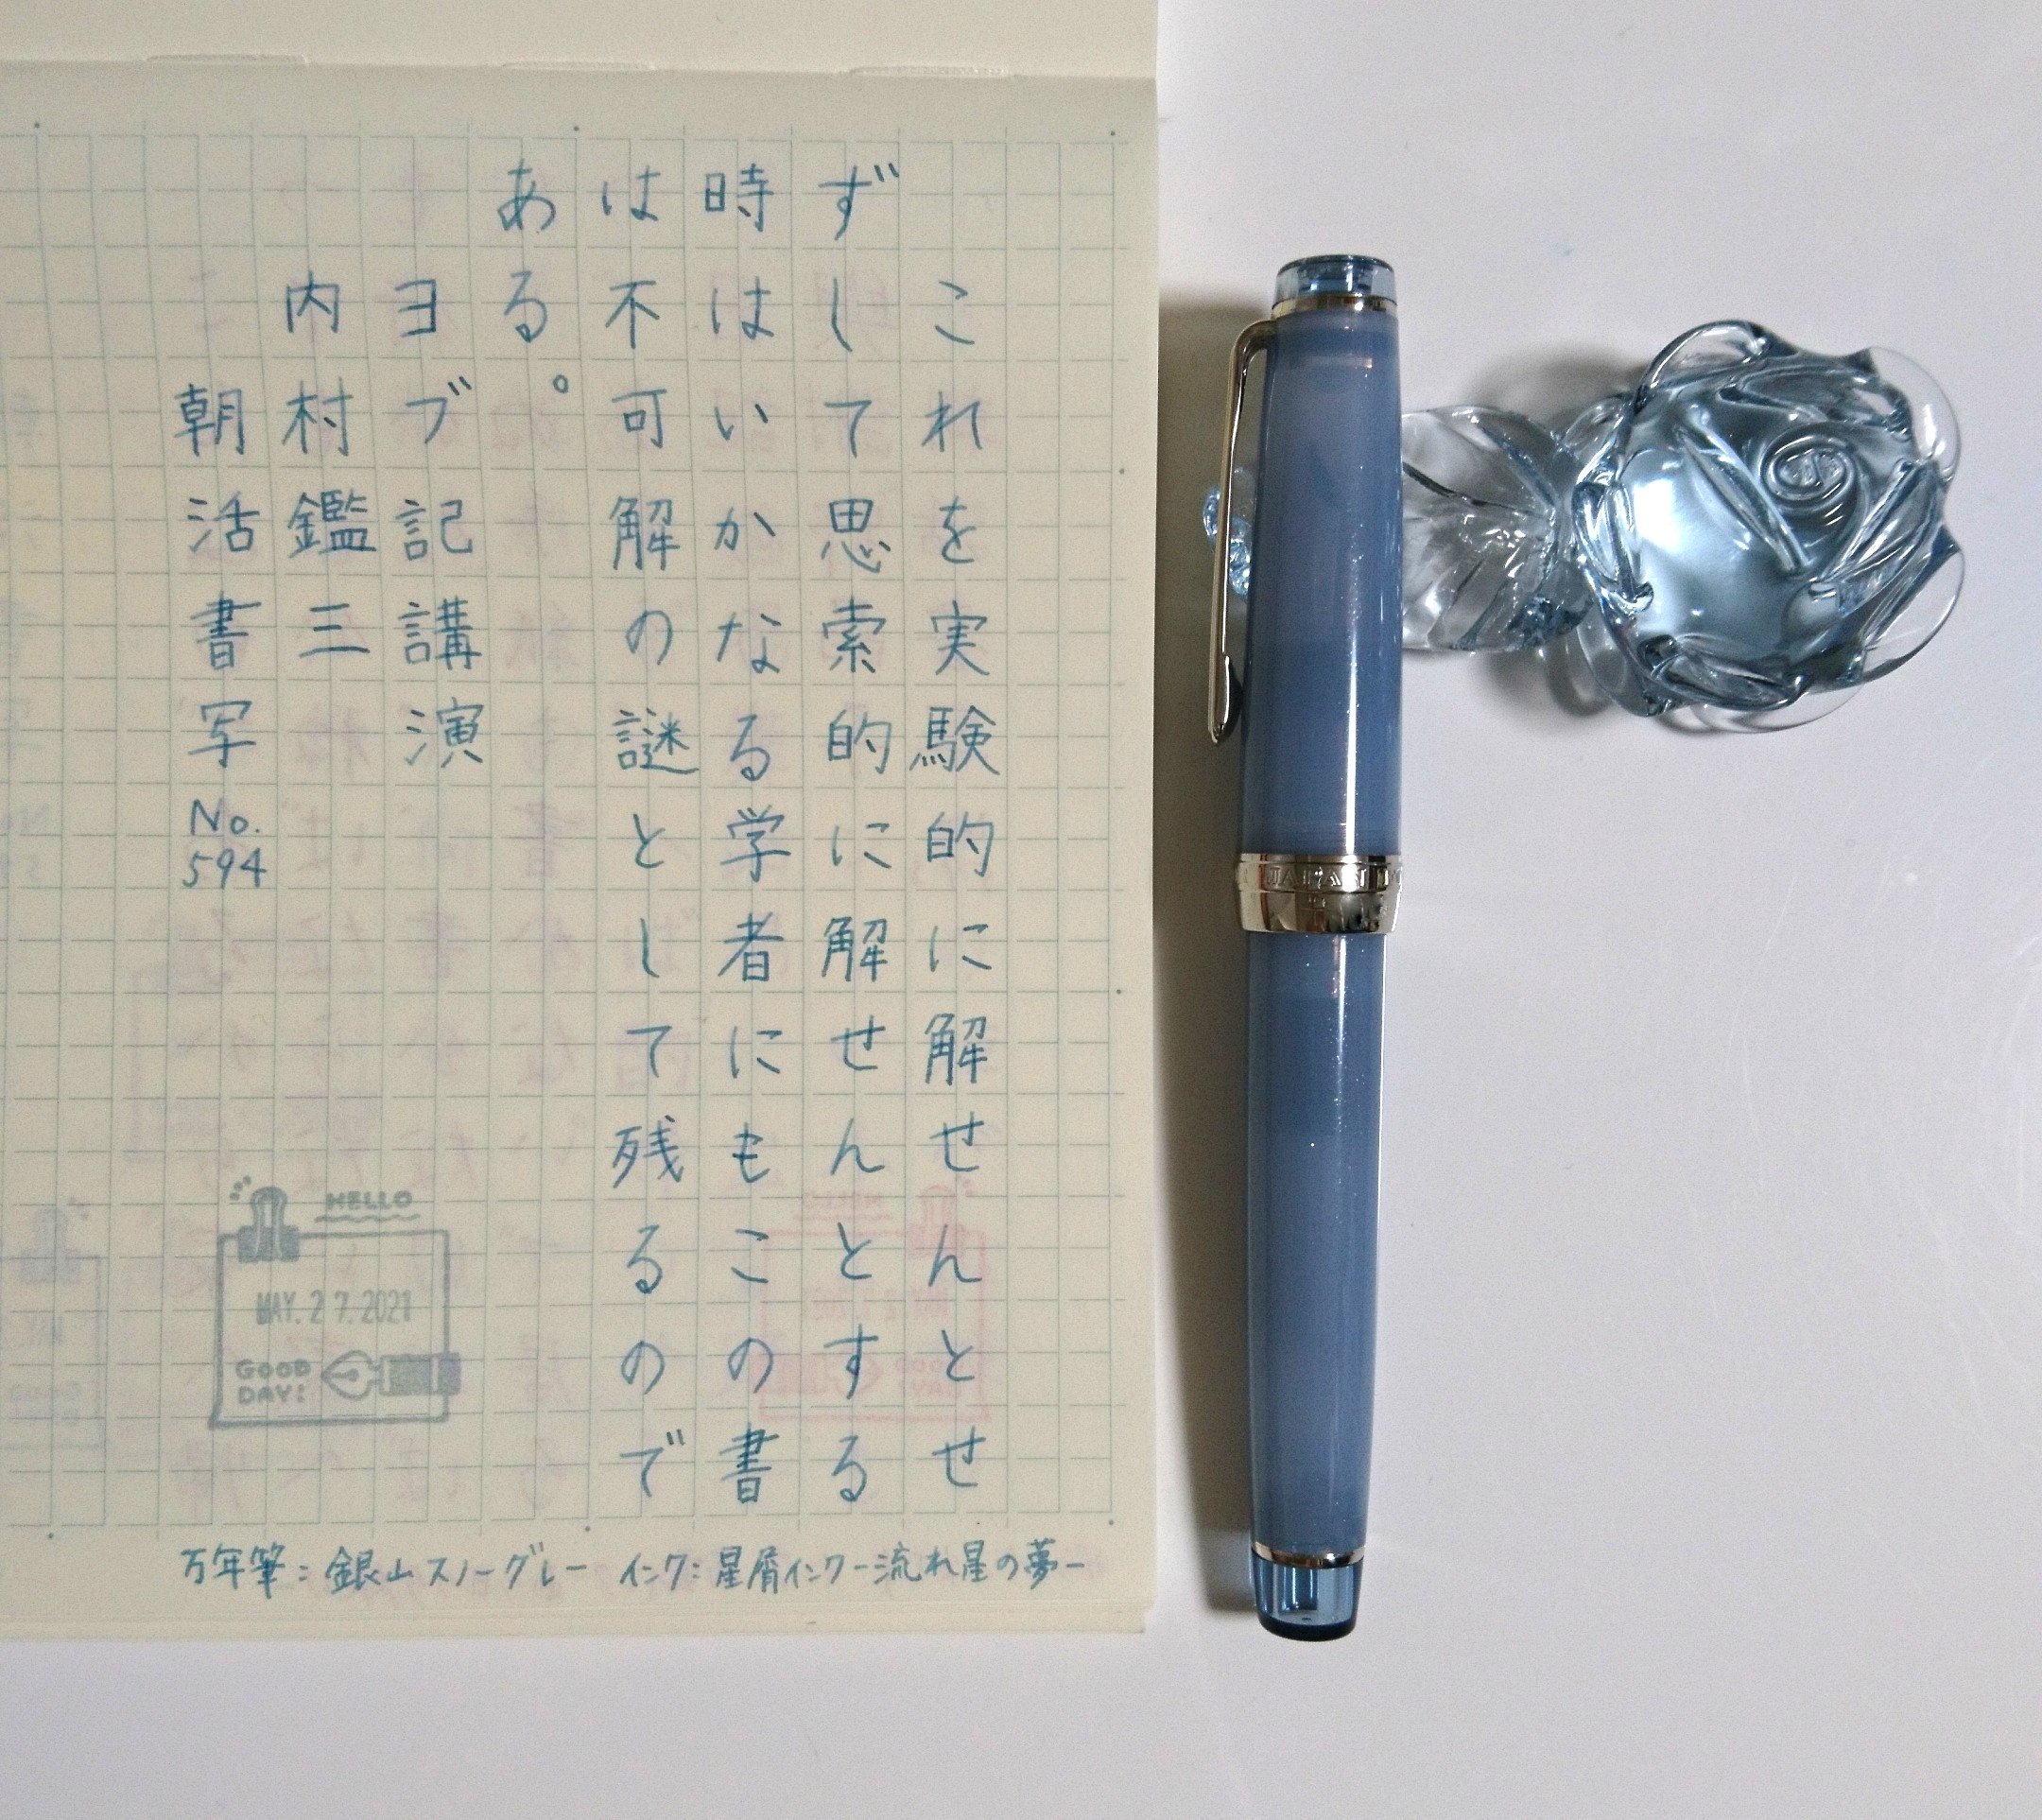 これを実験的に解せんとせ
ずして思索的に解せんとする
時はいかなる学者にもこの書
は不可解の謎として残るので
ある。
ヨブ記講演
内村鑑三
朝活書写
No.
594
HELLO
MAY. 27. 2021
GOOD
DAY!
万年筆：銀山スノーグレー　インク：星屑インクー流れ星の夢ー
JAPAN